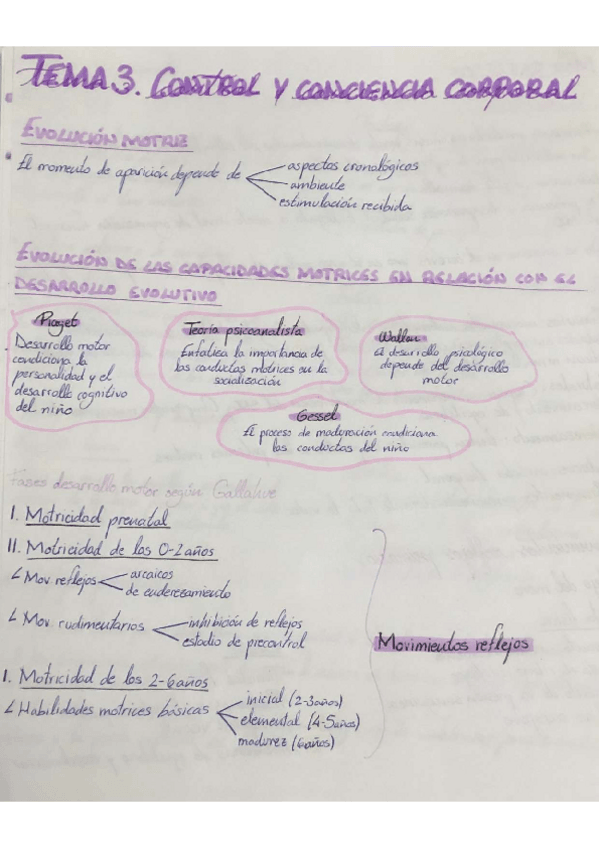 TEMA 3. CONTROL Y CONCIENCIA CORPORAL
EVOLUCIÓN MOTRIZ
El momento de aparición depende de
aspectos cronológicos
ambiente
estimulación recibida
EVOLUCIÓN DE LAS CAPACIDADES MOTRICES EN RELACIÓN CON EL
DESARROLLO EVOLUTIVO
Piaget
Desarrollo motor
condiciona la
personalidad y el
desarrollo cognitivo
del niño
Teoría psicoanalista
Enfatiza la importancia de
las conductas motrices en la
socialización
Wallon
El desarrollo psicológico
depende del desarrollo
motor
Gessel
El proceso de maduración condiciona
las conductas del niño
Fases desarrollo motor según Gallahue
I. Motricidad prenatal
II. Motricidad de los 0-2 años
Mov. reflejos
arcaicos
de enderezamiento
Mov. rudimentarios
inhibición de reflejos
estadio de precontrol
I. Motricidad de los 2-6 años
Habilidades motrices básicas
inicial (2-3 años)
elemental (4-5 años)
madurez (6 años)
Movimientos reflejos